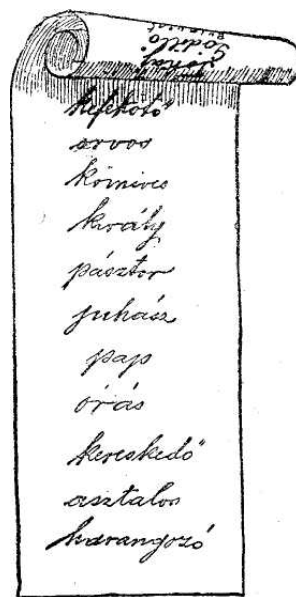 kefekötő
orvos
kőmives
király
pásztor
juhász
pap
órás
kereskedő
asztalos
harangozó